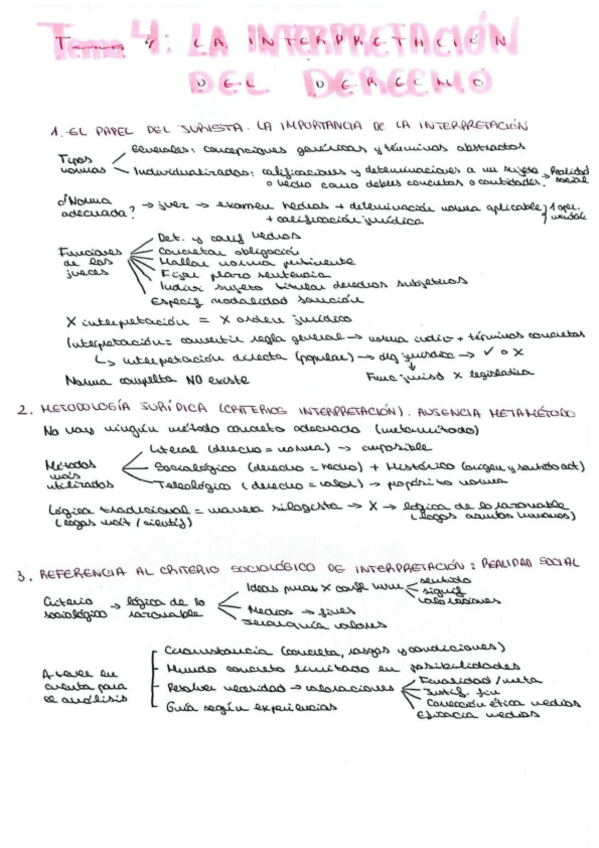 Tema 4: LA INTERPRETACIÓN
DEL DERECHO
1.-EL PAPEL DEL JURISTA. LA IMPORTANCIA DE LA INTERPRETACIÓN
Tipos normas
Generales: concepciones genéricas y términos abstractos
Individualizadas: calificaciones y determinaciones a un sujeto → Realidad social
o hecho como deberes concretos o cantidades.
¿Norma adecuada? → juez → examen hechos + determinación norma aplicable
+ calificación jurídica
1 oper.
Funciones de los jueces
Det. y calif hechos
Concretar obligación
Hallar norma pertinente
Fijar plazo sentencia
Indiv sujeto titular derechos subjetivos
Especif modalidad sanción
X interpretación = X orden jurídico
Interpretación: convertir regla general → norma indiv + términos concretos
↳ interpretación directa (popular) → dig jurídica → ✓ o X
Norma completa NO existe
Func jurisd X legislativa
2. METODOLOGÍA JURÍDICA (CRITERIOS INTERPRETACIÓN). AUSENCIA METAMÉTODO
No hay ningún método concreto adecuado (metamétodo)
Métodos más utilizados
Literal (derecho = norma) → imposible
Sociológico (derecho = hecho) + Histórico (origen y sentido act)
Teleológico (derecho = valor) → propósito norma
Lógica tradicional = manera silogista → X → lógica de lo razonable
(logos mat / científ)
(logos asuntos humanos)
3. REFERENCIA AL CRITERIO SOCIOLÓGICO DE INTERPRETACIÓN: REALIDAD SOCIAL
Criterio sociológico → lógica de lo razonable
Ideas puras X conf hum
sentido
signif
valoraciones
Medios → fines
Jerarquía valores
A tener en cuenta para el análisis
Circunstancia (concreta, rasgos y condiciones)
Mundo concreto limitado en posibilidades
Resolver necesidad → valoraciones
Finalidad/meta
Justif. fin
Corrección ética medios
Eficacia medios
Guía según experiencias